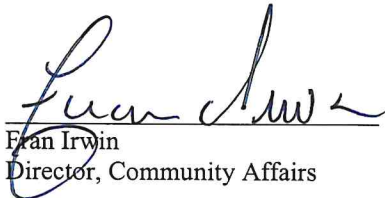 Fran Irwin
Fran Irwin
Director, Community Affairs